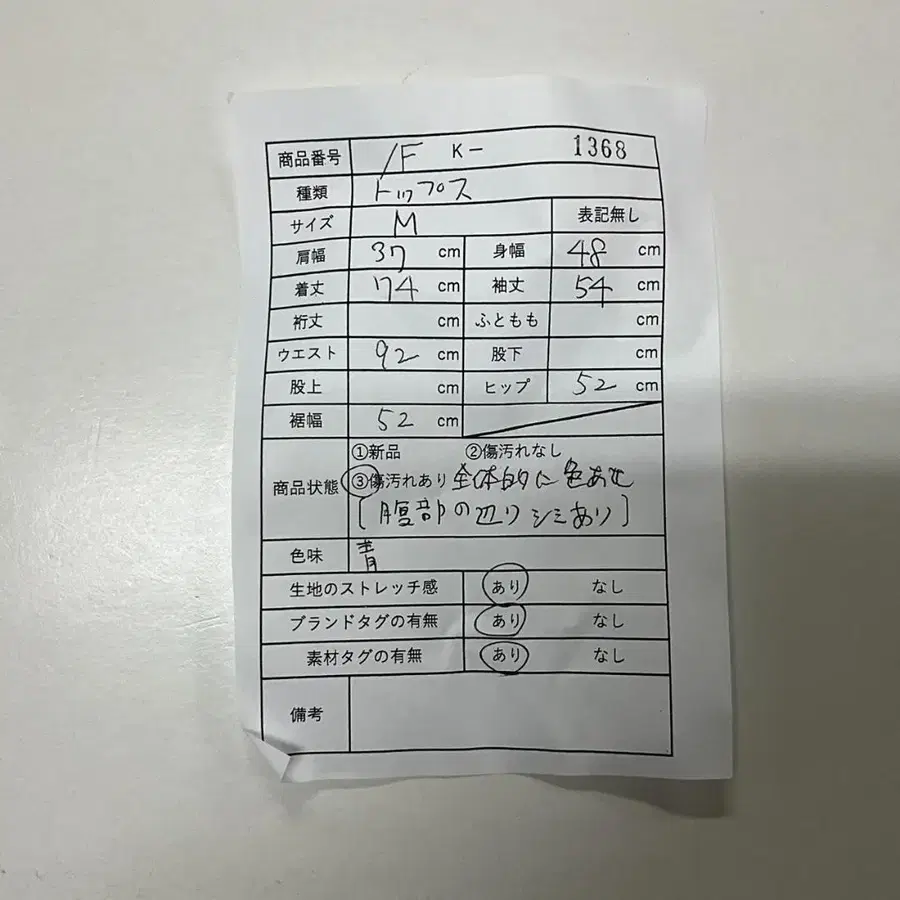 商品番号 /F K- 1368
種類 トップス
サイズ M 表記無し
肩幅 37 cm 身幅 48 cm
着丈 74 cm 袖丈 54 cm
裄丈 cm ふともも cm
ウエスト 92 cm 股下 cm
股上 cm ヒップ 52 cm
裾幅 52 cm
商品状態 ①新品 ②傷汚れなし
③傷汚れあり 全体的に色あせ
[腹部の辺りシミあり]
色味 青
生地のストレッチ感 あり なし
ブランドタグの有無 あり なし
素材タグの有無 あり なし
備考